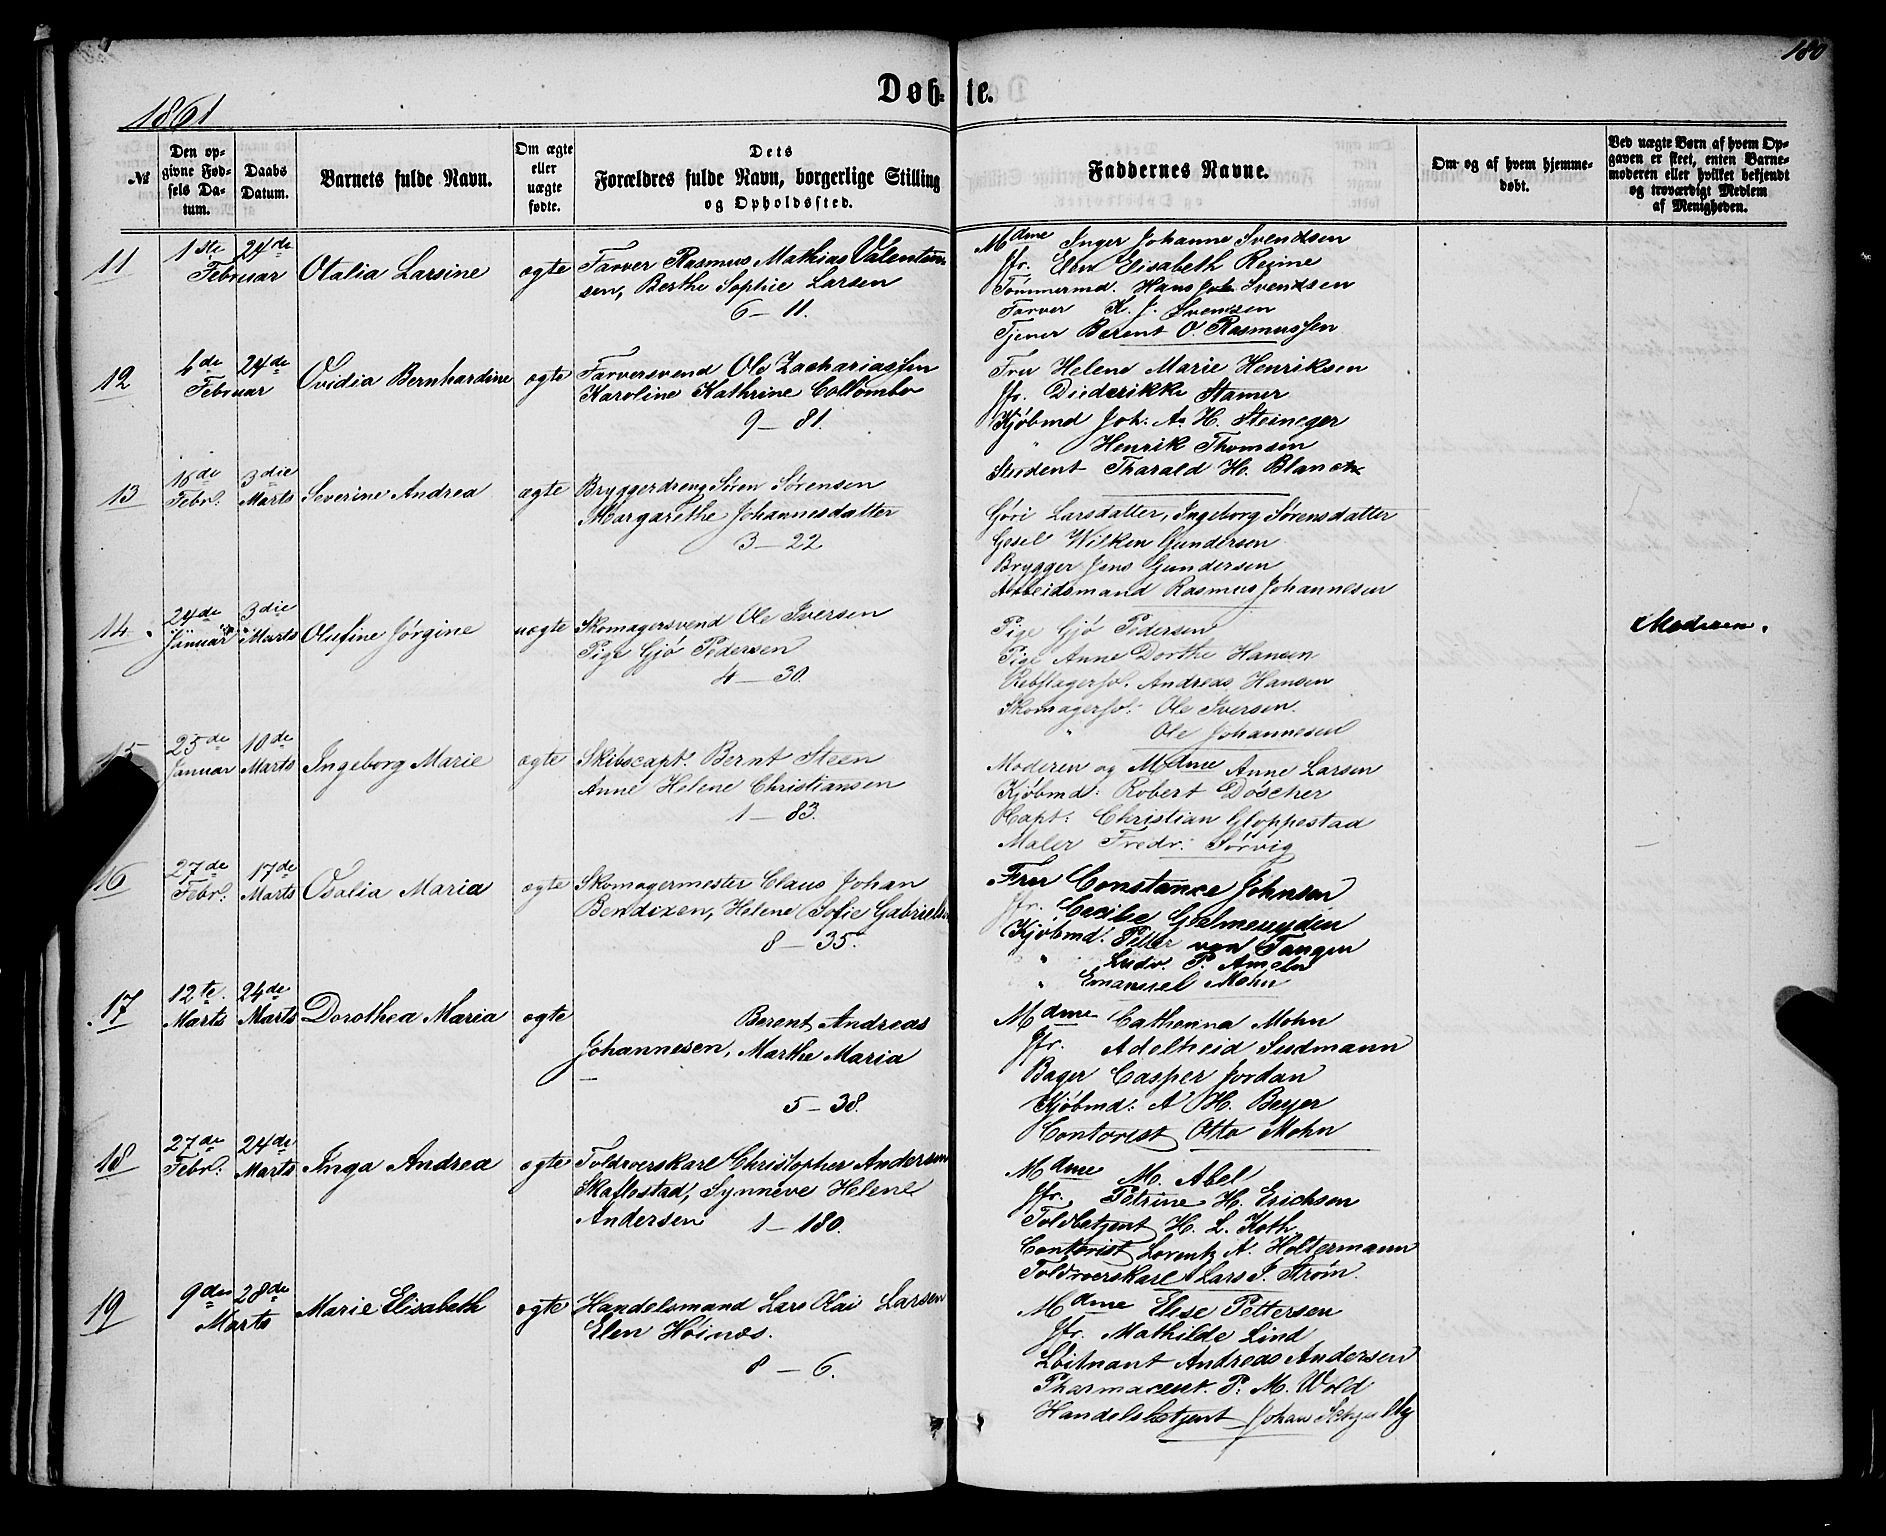 180
1861
Døb-te.
№
Den opgivne Fødsels Datum.
Daabs Datum.
Barnets fulde Navn.
Om ægte eller uægte fødte.
Dets Forældres fulde Navn, borgerlige Stilling og Opholdssted.
Faddernes Navne.
Om og af hvem hjemmedøbt.
Ved uægte Børn af hvem Opgaven er skeet, enten Barnemoderen eller hvilket bekjendt og troværdigt Medlem af Menigheden.
11
1ste 24de
Februar
Otalia Larsine
ægte
Farver Rasmus Mathias Valentin
sen, Berthe Sophie Larsen
6 - 11.
Mdme Inger Johanne Svendsen
Jfr. Elen Elisabeth Regine
Tømmermd. Hans Joh Svendsen
Farver K. J. Svendsen
Tjener Berent O. Rasmussen
12
6de 24de
Februar
Ovidia Bernhardine
ægte
Farversvend Ole Zachariassen
Karoline Kathrine Collombo
9 - 81.
Fru Helene Marie Henriksen
Jfr. Diederikke Stamer
Kjøbmd Joh. A. H. Steineger
" Henrik Thomsen
Student Tharald H. Blanck
13
16de Febr.
3die Marts
Severine Andrea
ægte
Bryggerdreng Søren Sørensen
Margarethe Johannesdatter
3 - 22
Gjøri Larsdatter, Ingeborg Sørensdatter
Gesel Wilken Gundersen
Brygger Jens Gundersen
Arbeidsmand Rasmus Johannesen
14.
24de Januar
3die Marts
Olufine Jørgine
uægte
Skomagersvend Ole Iversen
Pige Gjø Pedersen
4 - 30.
Pige Gjø Pedersen
Pige Anne Dorthe Hansen
Rebslagersv. Andreas Hansen
Skomagersv. Ole Iversen.
" Ole Johannesen
Moderen.
15
25de Januar
10de Marts
Ingeborg Marie
ægte
Skibscapt. Bernt Steen
Anne Helene Christiansen
1 - 83.
Moderen og Mdme Anne Larsen
Kjøbmd: Robert Døscher
Capt: Christian Gloppestad
Maler Fredr: Sørvig
16
27de Febr.
17de Marts
Osalia Maria
ægte
Skomagermester Claus Johan
Bendixen, Helene Sofie Gabrielsen
8 - 35.
Frue Constance Johnsen
Jfr. Cecilie Geelmeuyden
Kjøbmd: Petter von Tangen
" Ludv. P. Ameln
" Emanuel Mohn
17
12te Marts
24de Marts
Dorothea Maria
ægte
Berent Andreas
Johannesen, Marthe Maria
5 - 38.
Mdme Catharina Mohn
Jfr. Adelheid Sudmann
Bager Casper Jordan
Kjøbmd: A H. Beyer
Contorist Otto Mohn
18
27de Febr.
24de Marts
Inga Andrea
ægte
Toldroerskarl Christopher Andersen
Skaflestad, Synneve Helene
Andersen 1 - 180.
Mdme M. Abel
Jfr. Petrine H. Erichsen
Toldbetjent H. L. Koth
Contorist Lorentz A. Holtermann
Toldroerskarl Lars J. Strøm.
19
9de 28de
Marts
Marie Elisabeth
ægte
Handelsmand Lars Olai Larsen
Elen Høines.
8 - 6.
Mdme Elise Pettersen
Jfr. Mathilde Lind
Løitnant Andreas Andersen
Pharmaceut. P. M. Wold
Handelsbetjent Johan